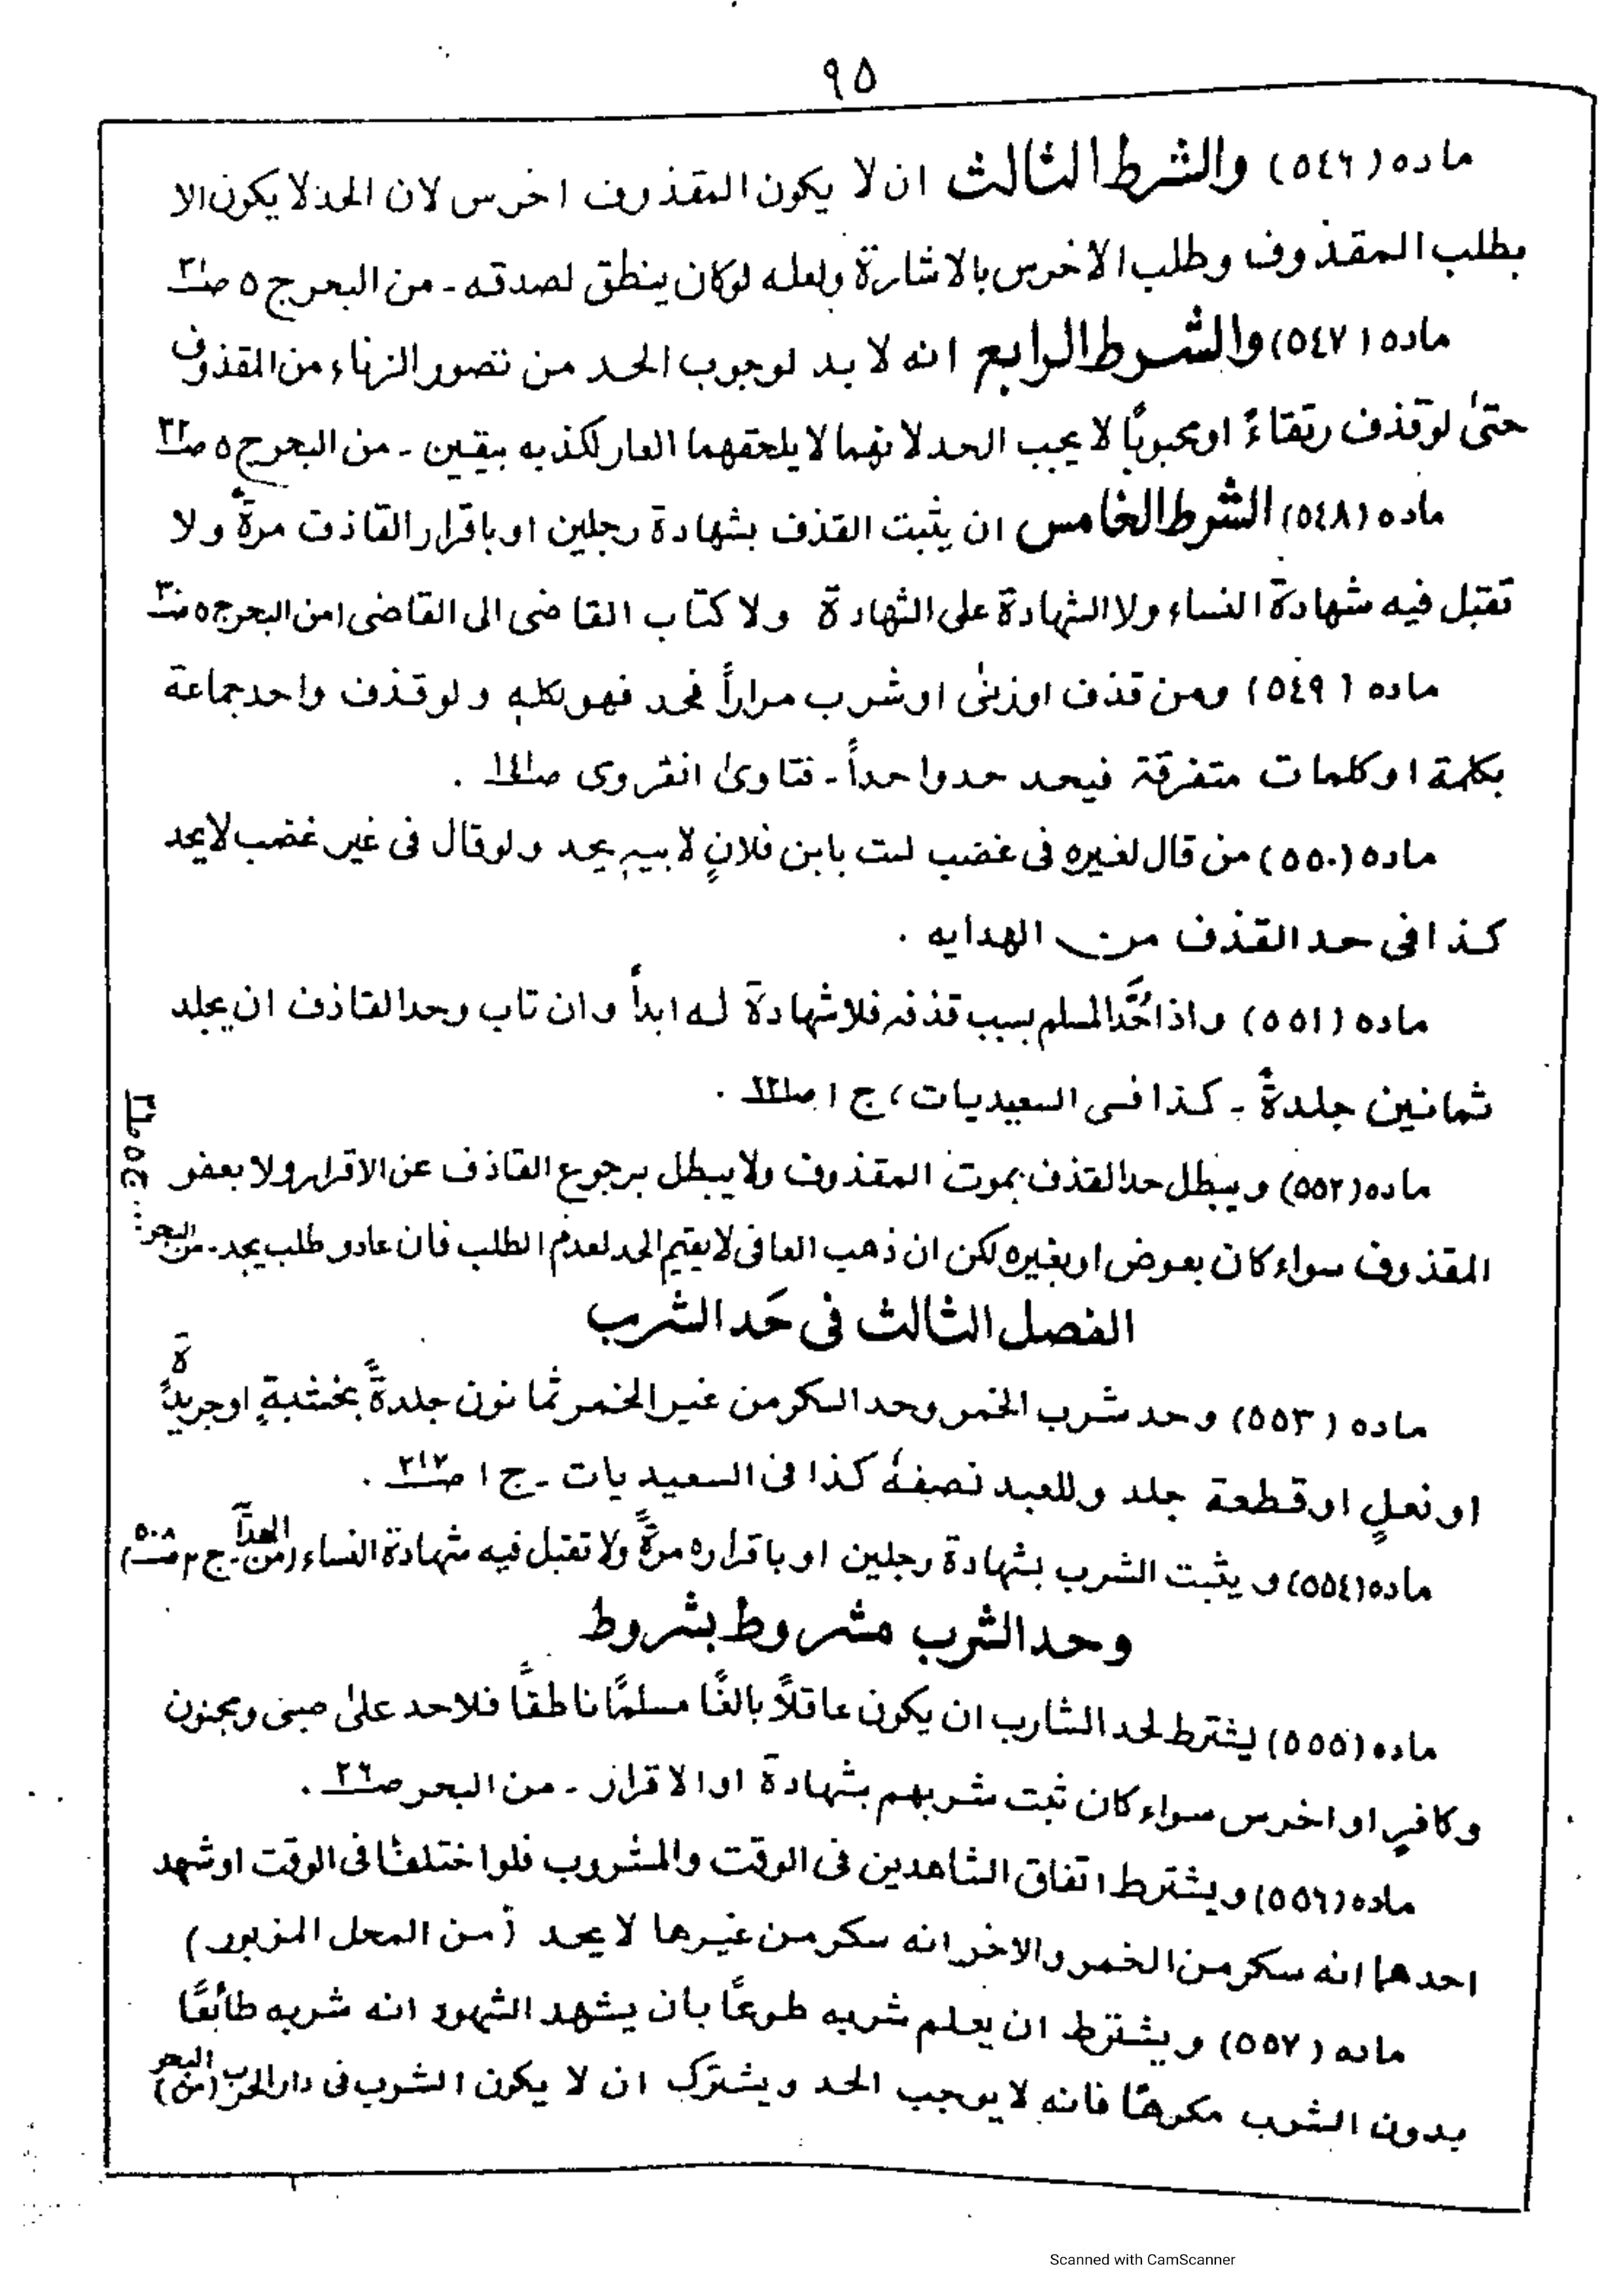 ٩٥
ماده (٥٤٦) والشرط الثالث ان لا يكون المقذوف اخرس لان الحد لا يكون الا
بطلب المقذوف وطلب الاخرس بالاشارة ولعله لوكان ينطق لصدقه - من البحر ج ٥
ماده (٥٤٧) والشرط الرابع انه لا بد لوجوب الحد من تصور الزناء من المقذوف
حتىٰ لوقذف رتقاءً او مجبوبًا لا يجب الحد لانهما لا يلحقهما العار لكذبه بيقين - من البحر ج ٥
ماده (٥٤٨) الشرط الخامس ان يثبت القذف بشهادة رجلين او باقرار القاذف مرةً ولا
تقبل فيه شهادة النساء ولا الشهادة على الشهادة ولا كتاب القاضى الى القاضى (من البحر ج ٥
ماده (٥٤٩) ومن قذف اوزنىٰ اوشرب مراراً فحد فهو لكله ولوقذف واحد جماعة
بكلمة اوكلمات متفرقة فيحد حدوا حداً - فتاوىٰ انقروى
ماده (٥٥٠) من قال لغيره فى غضب لست بابن فلانٍ لابيه يحد ولوقال فى غير غضب لا يحد
كذا فى حد القذف من الهدايه .
ماده (٥٥١) واذا حُدَّ المسلم بسبب قذفه فلا شهادة له ابداً وان تاب وحد القاذف ان يجلد
ثمانين جلدةً - كذا فى السعيديات، ج ١
ماده (٥٥٢) ويبطل حد القذف بموت المقذوف ولا يبطل برجوع القاذف عن الاقرار ولا بعفو
المقذوف سواء كان بعوض او بغيره لكن ان ذهب العافى لا يقيم الحد لعدم الطلب فان عاد و طلب يحد - من البحر
ج ٥
الفصل الثالث فى حَد الشرب
ماده (٥٥٣) وحد شرب الخمر وحد السكر من غير الخمر ثمانون جلدةً بخشبةٍ اوجريدةً
او نعلٍ او قطعة جلد وللعبد نصفهٗ كذا فى السعيديات - ج ١ صـ٢١٧ .
ماده (٥٥٤) و يثبت الشرب بشهادة رجلين او باقراره مرةً ولا تقبل فيه شهادة النساء (من - ج ٢ صـ٥٠٨)
وحد الشرب مشروط بشروط
ماده (٥٥٥) يشترط لحد الشارب ان يكون عاقلاً بالغًا مسلمًا ناطقاً فلا حد علىٰ صبى ومجنون
وكافرٍ او اخرس سواء كان ثبت شربهم بشهادة او الاقرار - من البحر صـ٢٦ .
ماده (٥٥٦) ويشترط اتفاق الشاهدين فى الوقت والمشروب فلوا ختلفا فى الوقت اوشهد
احدهما انه سكر من الخمر والاخر انه سكر من غيرها لا يحد (من المحل المزبور)
ماده (٥٥٧) ويشترط ان يعلم شربه طوعًا بان يشهد الشهود انه شربه طائعًا
بدون الشرب مكرهًا فانه لا يوجب الحد ويشترك ان لا يكون الشرب فى دار الحرب (من البحر)
Scanned with CamScanner